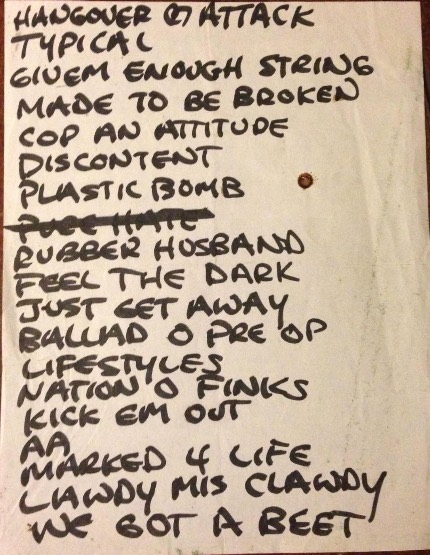 HANGOVER ATTACK
TYPICAL
GIVEM ENOUGH STRING
MADE TO BE BROKEN
COP AN ATTITUDE
DISCONTENT
PLASTIC BOMB
PURE HATE
RUBBER HUSBAND
FEEL THE DARK
JUST GET AWAY
BALLAD O PRE OP
LIFESTYLES
NATION O FINKS
KICK EM OUT
AA
MARKED 4 LIFE
LAWDY MIS CLAWDY
WE GOT A BEET